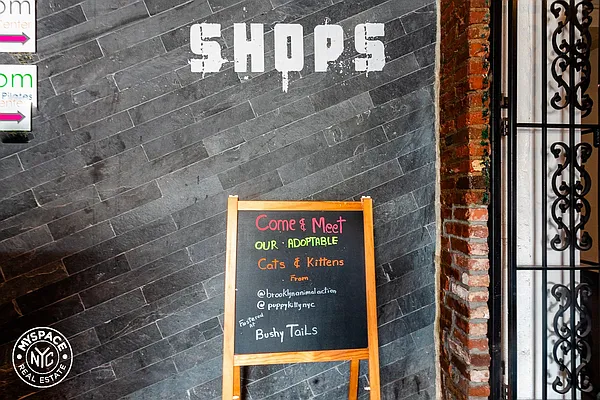 om
Center
om
Pilates
Center
SHOPS
Come & Meet
OUR · ADOPTABLE
Cats & Kittens
From
@brooklynanimalaction
@puppykittynyc
Fostered
at
Bushy TaiLs
MYSPACE
NYC
REAL ESTATE